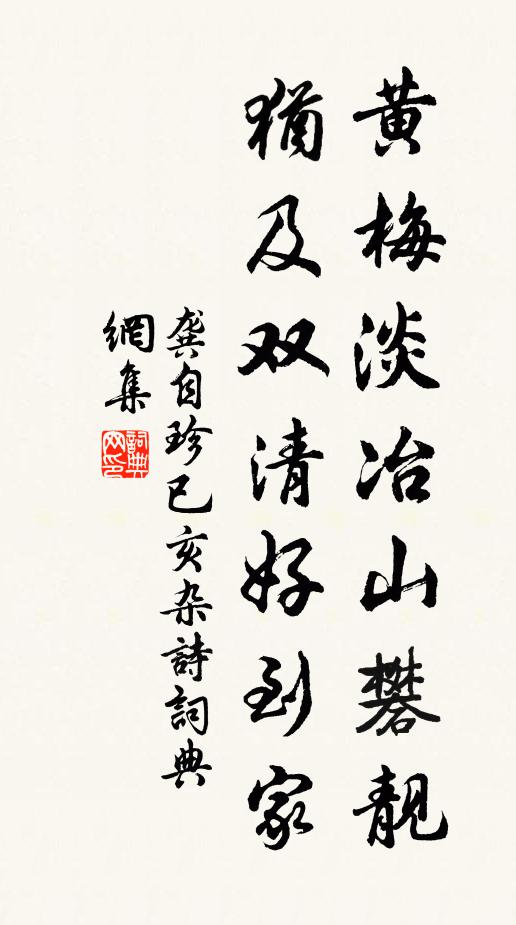 黄梅淡冶山礬靓
猶及双清好到家
龚自珍已亥杂詩詞典
網集
詞典
网印